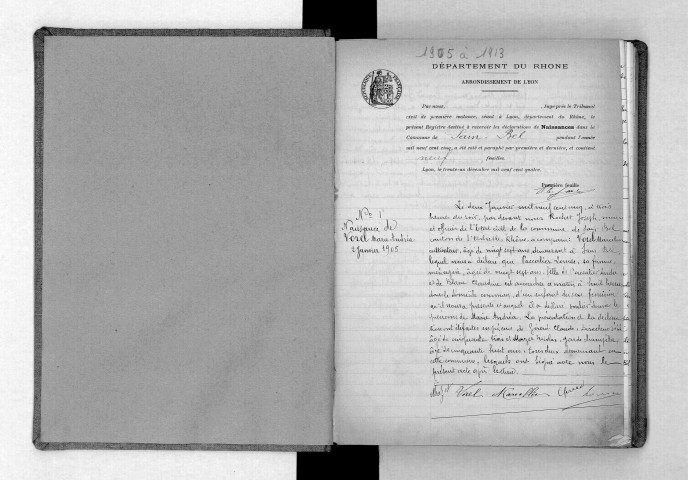 1905 à 1913
DÉPARTEMENT DU RHONE
ARRONDISSEMENT DE LYON
Par nous, Juge près le Tribunal
civil de première instance, séant à Lyon, département du Rhône, le
présent Registre destiné à recevoir les déclarations de Naissances dans la
Commune de Sain Bel pendant l'année
mil neuf cent cinq, a été coté et paraphé par première et dernière, et contient
neuf feuillets.
Lyon, le trente-un décembre mil neuf cent quatre.
Première feuille
No 1
Naissance de
Vorel Marie Andréa
2 Janvier 1905
Le deux Janvier mil neuf cent cinq, à trois
heures du soir, par devant nous Rochet Joseph, maire
et officier de l'état civil de la commune de Sain Bel
canton de l'Arbresle, Rhône, a comparu Vorel Marcellin
cultivateur, âgé de vingt sept ans, demeurant à Sain Bel
lequel nous a déclaré que Louise, sa femme,
ménagère, âgée de vingt sept ans, fille de
et de Claudine est accouchée ce matin à
dans le domicile commun, d'un enfant du sexe féminin
qu'il nous a présenté et auquel il a déclaré vouloir donner les
prénoms de Marie Andréa. La présentation et la déclara
tion ont été faites en présence de Claude,
âgé de cinquante trois et garde champêtre
âgé de cinquante huit ans, tous deux demeurant en
cette commune, lesquels ont signé avec nous le
présent acte après lecture.
Vorel Marcellin